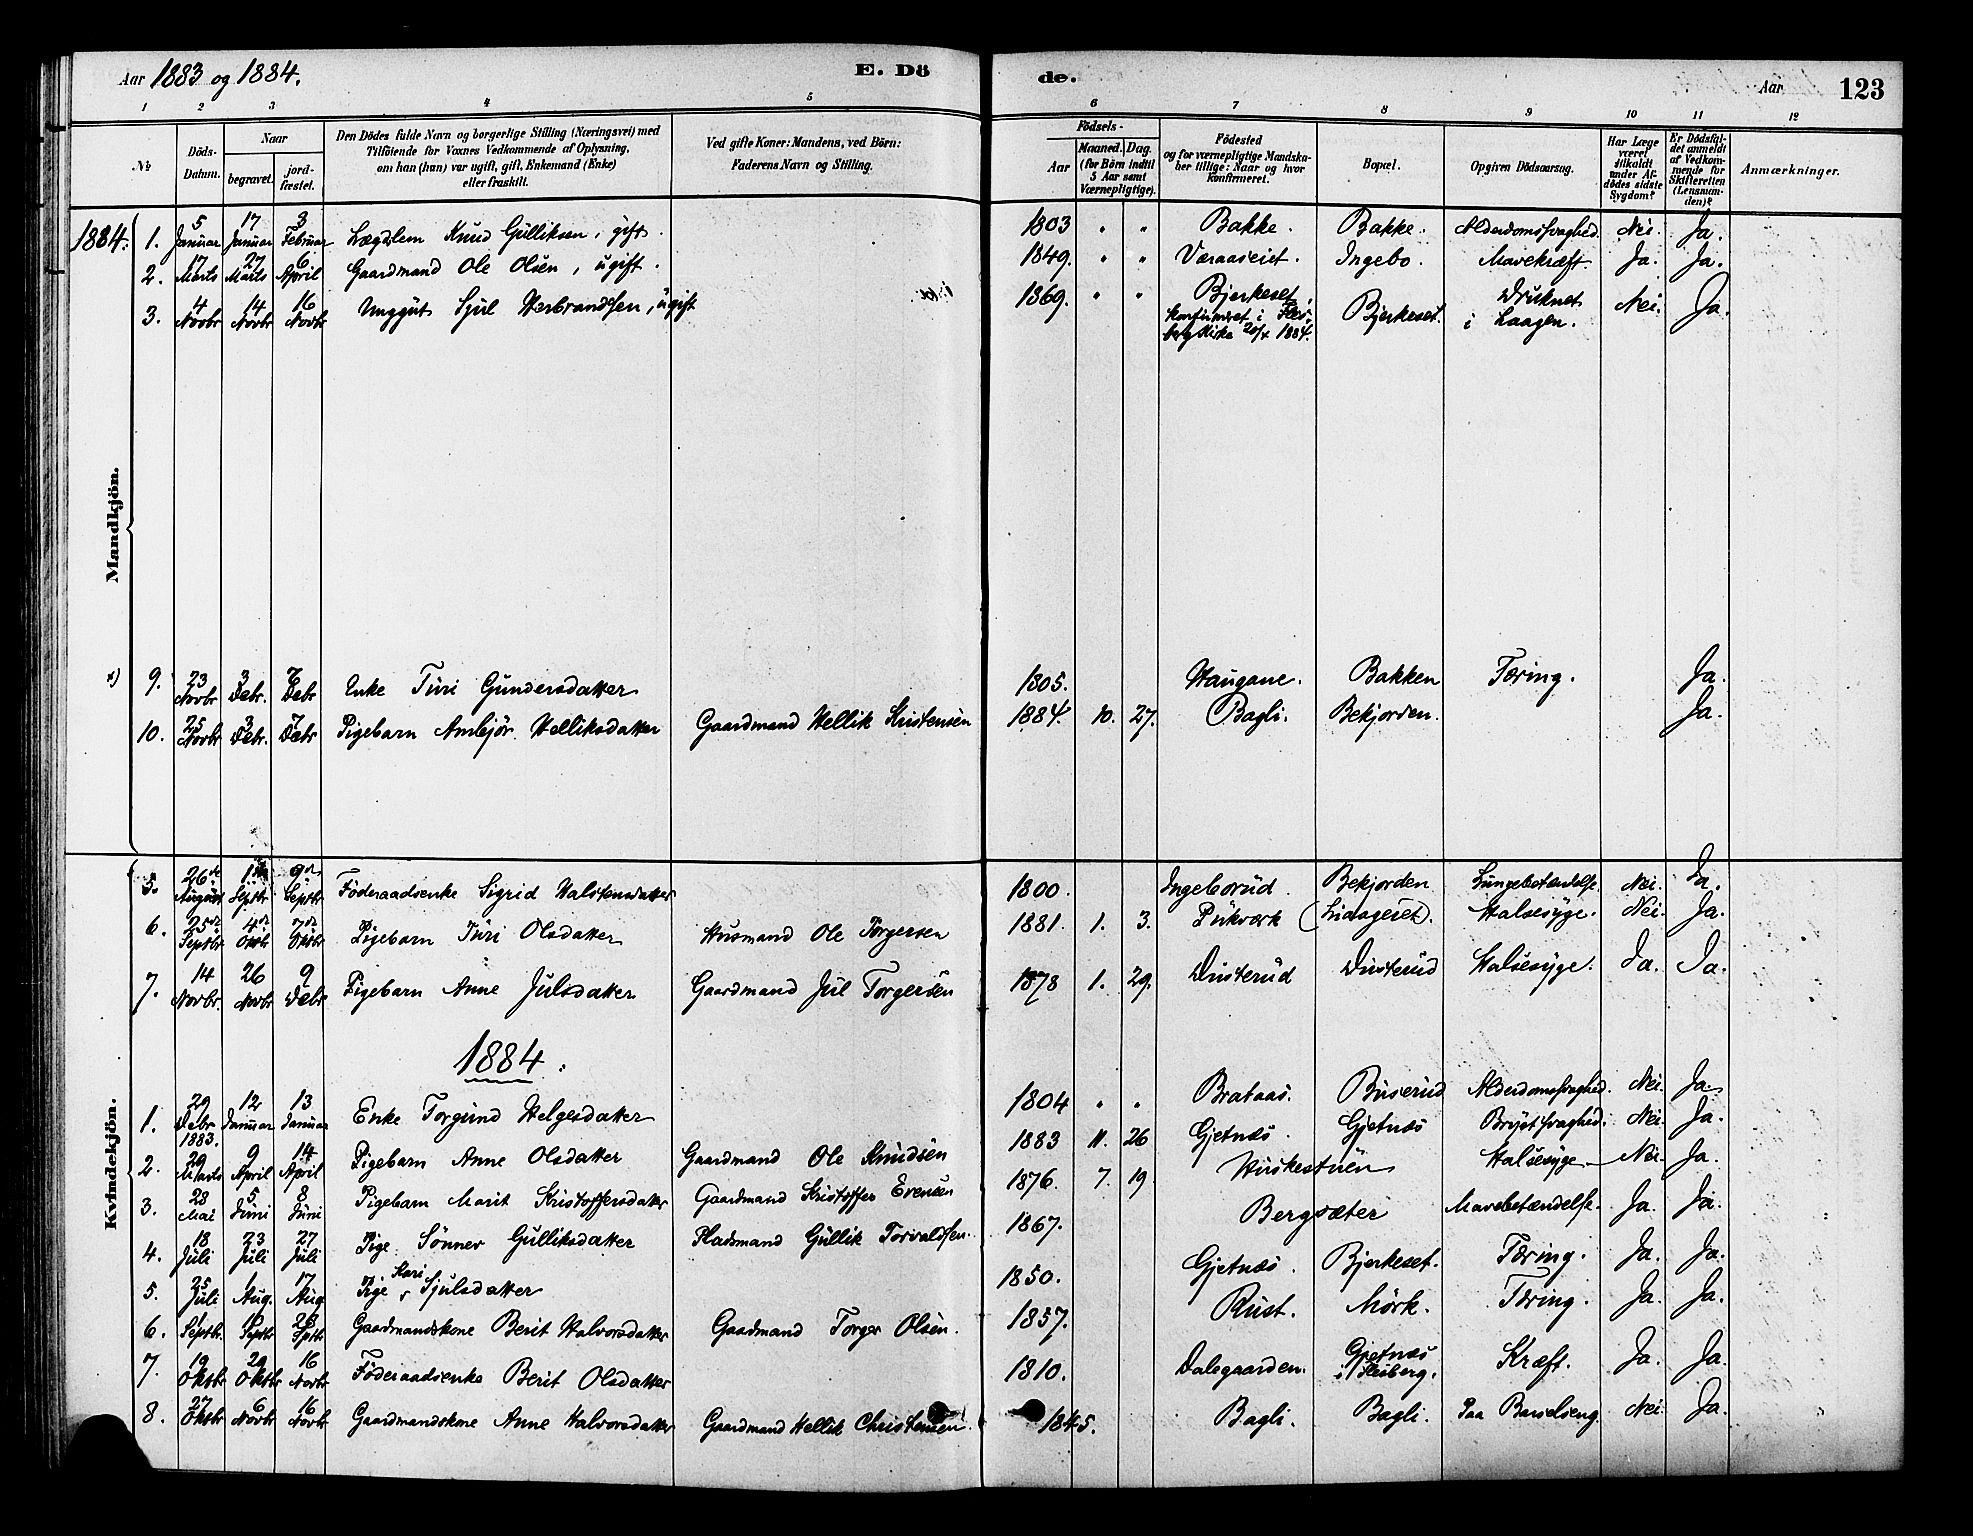 Aar 1883 og 1884. E. Dö de. Aar 123
1 2 3 4 5 6 7 8 9 10 11 12
№
Döds-Datum.
Naar
begravet.
jord-fæstet.
Den Dödes fulde Navn og borgerlige Stilling (Næringsvei) med
Tilföiende for Voxnes Vedkommende af Oplysning,
om han (hun) var ugift, gift, Enkemand (Enke)
eller fraskilt.
Ved gifte Koner: Mandens, ved Börn:
Faderens Navn og Stilling.
Födsels-
Aar
Maaned. Dag.
(for Börn indtil
5 Aar samt
Værnepligtige).
Födested
og for værnepligtige Mandska-
ber tillige: Naar og hvor
konfirmeret.
Bopæl.
Opgiven Dödsaarsag.
Har Læge
været
tilkaldt
under Af-
dödes sidste
Sygdom?
Er Dödsfal-
det anmeldt
af Vedkom-
mende for
Skifteretten
(Lensman-
den)?
Anmærkninger.
Mandkjön.
1884. 1. 5 Januar 17 Januar 3 Februar Lægdslem Knud Gulliksen, gift. 1803 " " Bakke. Bakke. Alderdomssvaghed. Nei. Ja.
2. 17 Marts 27 Marts 6 April Gaardmand Ole Olsen, ugift. 1849. " " Væraaseiet. Ingebo. Mavekræft. Ja. Ja.
3. 4 Novbr 14 Novbr 16 Novbr Unggut Sjul Herbrandsen, ugift 1869. " " Bjerkeset, konfirmeret i Fles-berg Kirke 20/4 1884. Bjerkeset. Druknet i Laagen. Nei. Ja.
x) 9. 23 Novbr 3 Debr. 7 Debr Enke Turi Gundersdatter 1805. Haugane. Bakken Tæring. Ja.
10. 25 Novbr 3 Debr. 7 Debr Pigebarn Ambjør Helliksdatter Gaardmand Hellik Kristensen 1884. 10. 27. Bagli. Bekjorden. Ja.
Kvindekjön.
5. 26de August 1ste Septbr 9de Septbr Föderaadsenke Sigrid Halstensdatter 1800. Ingeborud. Bekjorden Lungebetændelse. Nei. Ja.
6. 25de Septbr 4de Oktbr 7de Oktbr Pigebarn Turi Olsdatter Husmand Ole Torgersen 1881. 1. 3. Pukverk (Liaageset). Halsesyge. Nei. Ja.
7. 14 Novbr. 26 Novbr 9 Debr. Pigebarn Anne Julsdatter Gaardmand Jul Torgersen 1878 1. 29. Dusterud Dusterud Halsesyge. Ja. Ja.
1884.
1. 29 Debr 1883. 12 Januar 13 Januar Enke Torgund Helgesdatter 1804 " " Brataas. Buserud Alderdomssvaghed. Nei. Ja.
2. 29 Marts 9 April 14 April Pigebarn Anne Olsdatter Gaardmand Ole Knudsen 1883 11. 26 Gjetnæs. Gjetnæs Brystsvaghed. Nei. Ja.
3. 28 Mai 5 Juni 8 Juni Pigebarn Marit Kristoffersdatter Gaardmand Kristoffer Evensen 1876. 7. 19. Huskestuen Halsesyge. Nei. Ja.
4. 18 Juli 23 Juli 27 Juli Pige Sönnev Gulliksdatter Pladsmand Gullik Torvaldsen. 1867. Bergsæter Mavebetændelse. Ja. Ja.
5. 25 Juli 1 Aug. 17 Aug Pige Kari Sjulsdatter 1850. Gjetnæs. Bjerkeset. Tæring. Ja. Ja.
6. 1 Septbr. Septbr 28 Septbr. Gaardmandskone Berit Halvorsdatter Gaardmand Torger Olsen. 1857. Rust. Mörk. Tæring. Ja. Ja.
7. 19 Oktbr 29 Oktbr 16 Novbr Föderaadsenke Berit Olsdatter 1810. Dalegaarden. Gjetnæs i Flesberg. Kræft. Ja. Ja.
8. 27 Oktbr 6 Novbr 16 Novbr Gaardmandskone Anne Halvorsdatter Gaardmand Hellik Christensen. 1845. Bagli. Bagli. Paa Barselseng. Nei. Ja.